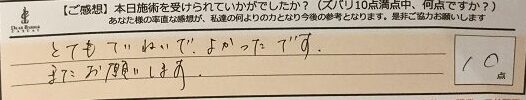 【ご感想】本日施術を受けられていかがでしたか？（ズバリ10点満点中、何点ですか？）
あなた様の率直な感想が、私達の何よりの力となり今後の参考となります。是非ご協力お願いします
とてもていねいで、よかったです。
またお願いします。
10
点